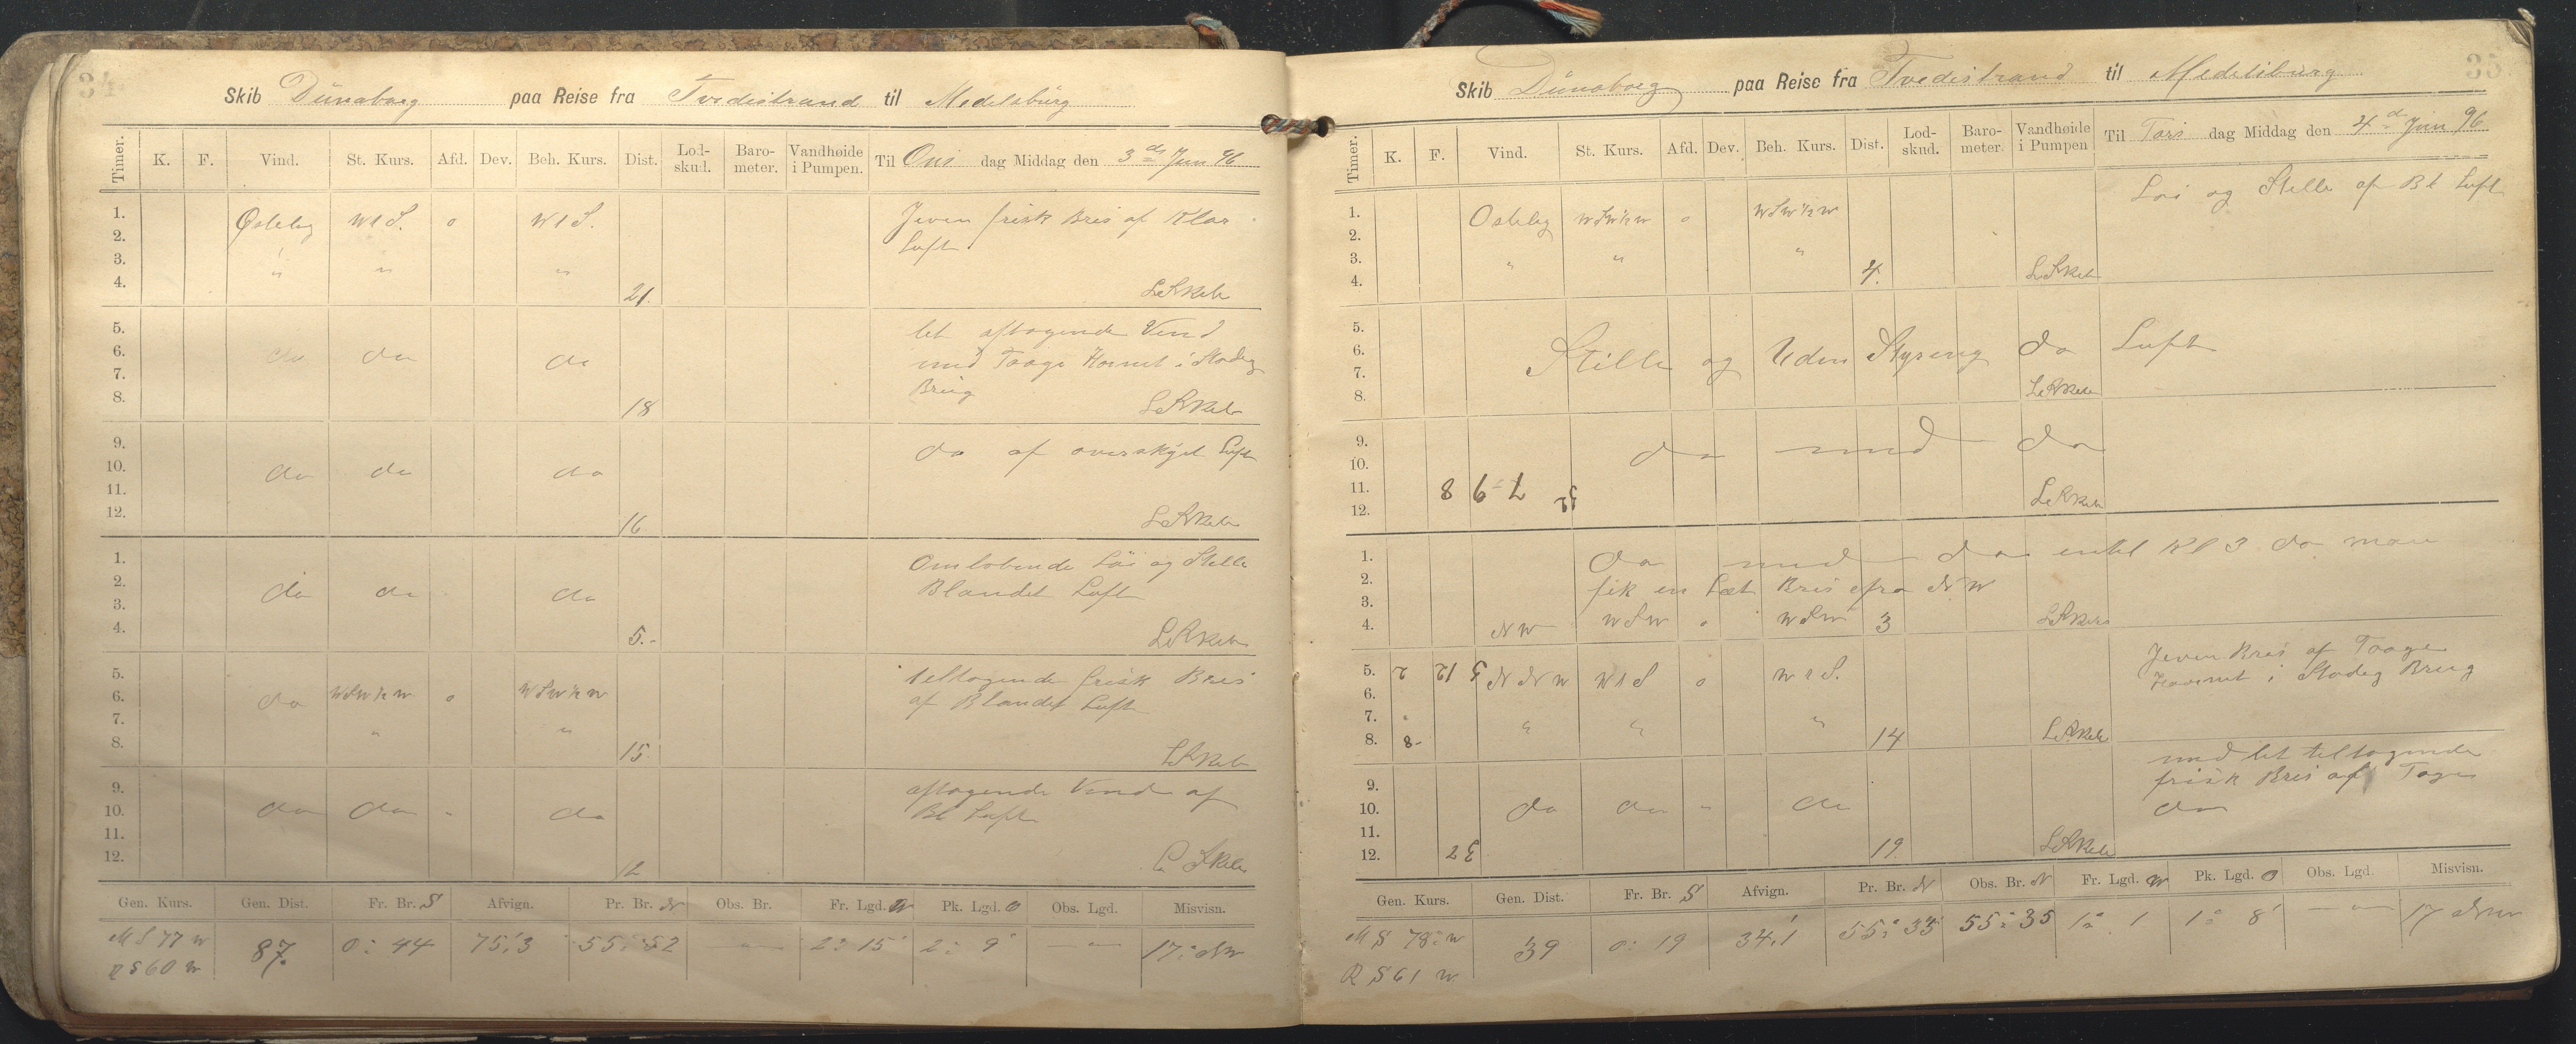 34
Skib Dünaborg paa Reise fra Tvedestrand til Medelsburg
Timer. K. F. Vind. St. Kurs. Afd. Dev. Beh. Kurs. Dist. Lod-skud. Baro-meter. Vandhøide i Pumpen. Til Ons dag Middag den 3de Juni 96
1. Østelig W t S. o W t S. Jevn frisk Bris af Klar
2. Luft.
3. " " "
4. 21. 
5. let aftagende Vind
6. do do do med Taage Hornet i Stadig
7. Brug
8. 18
9. do af overskyet Luft
10. do do do
11.
12. 16
1. Omløbende Løi og Stille
2. do do do Blandet Luft
3.
4. 5.-
5. tiltagende frisk Bris
6. do WSW½W o WSW½W af Blandet Luft
7. " "
8. 15
9. aftagende Vind af
10. do do " do Bl Luft
11.
12. 12
Gen. Kurs. Gen. Dist. Fr. Br. S Afvign. Pr. Br. N Obs. Br. Fr. Lgd. W Pk. Lgd. O Obs. Lgd. Misvisn.
M S 77 W 87. 0° 44 75,3 55° 52 — 2° 15' 2° 9' — 17° NW
R S 60 W
35
Skib Dünaborg paa Reise fra Tvedestrand til Medelsburg
Timer. K. F. Vind. St. Kurs. Afd. Dev. Beh. Kurs. Dist. Lod-skud. Baro-meter. Vandhøide i Pumpen Til Tors dag Middag den 4de Juni 96
1. Ostelig WSW½W o WSW½W Løi og Stille af Bl Luft
2.
3. " " "
4. 4.
5.
6. Stille og Uden Styring do Luft
7.
8.
9. do med do
10.
11. 8 6
12.
1. do med do intil Kl 3 da man
2. fik en Let Bris fra NW
3.
4. NW WSW o WSW 3
5. NNW W t S o W t S. Jevn Bris af Taage
6. Hornet i Stadig Brug
7. " " "
8. 8- 14
9. med let tiltagende
frisk Bris af Tage
10. do do " do do
11.
12. 19.
Gen. Kurs. Gen. Dist. Fr. Br. S Afvign. Pr. Br. N Obs. Br. N Fr. Lgd. W Pk. Lgd. O Obs. Lgd. Misvisn.
M S 78° W 39 0° 19 34,1 55° 33 55° 35 1° 1 1° 8' — 17 NW
R S 61 W